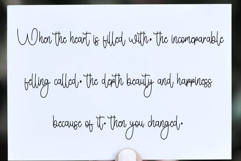 When the heart is filled with. the incomparable
feeling called. the depth beauty and happiness
because of it. then you changed.